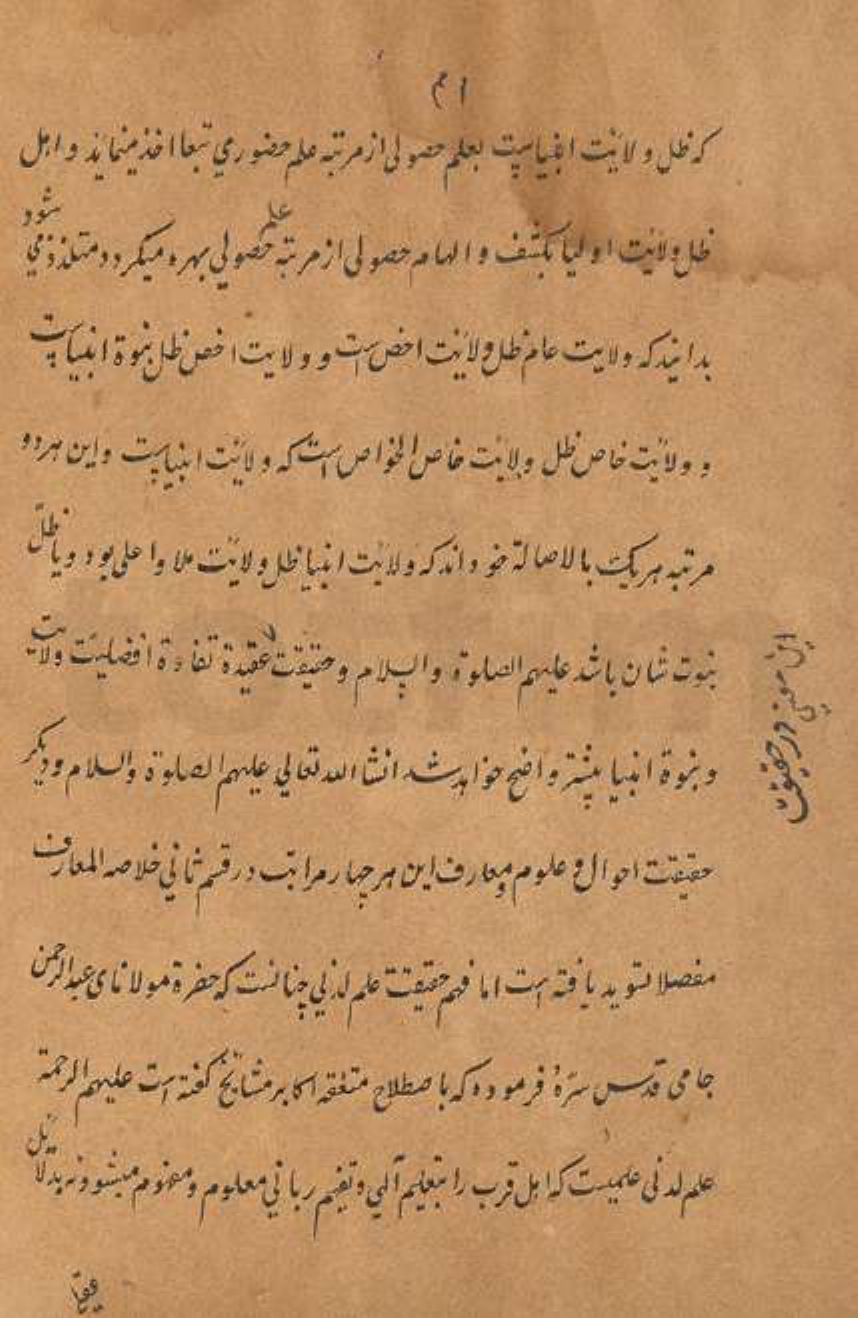 ۴۱
که ظل ولایت انبیاست بعلم حصولی از مرتبه علم حضوری تبعا اخذ مینماید و اهل
ظل ولایت اولیا بکشف و الهام حصولی از مرتبه علم حصولی بهره میگردد متلذذ می شود
بدانید که ولایت عام ظل ولایت اخص است و ولایت اخص ظل نبوة انبیاست
و ولایت خاص ظل ولایت خاص الخواص است که ولایت انبیاست و این هر دو
مرتبه هر یک بالاصالة خود اند که ولایت انبیا ظل ولایت ملاء اعلی بود و یا ظل
نبوت شان باشد علیهم الصلوة والسلام و حقیقت عقیدة تفاوة افضلیت ولایت
و نبوة انبیا پیشتر واضح خواهد شد انشا الله تعالی علیهم الصلوة والسلام و دیگر
حقیقت احوال و علوم و معارف این هر چهار مراتب در قسم ثانی خلاصه المعارف
مفصلا تسوید یافته است اما فهم حقیقت علم لدنی چنانست که حضرة مولانای عبدالرحمن
جامی قدس سره فرموده که باصطلاح متفقه اکابر مشایخ گفته است علیهم الرحمة
علم لدنی علمیست که اهل قرب را بتعلیم آلهی و تفهیم ربانی معلوم و مفهوم میشود نه بدلایل
در حقیقت